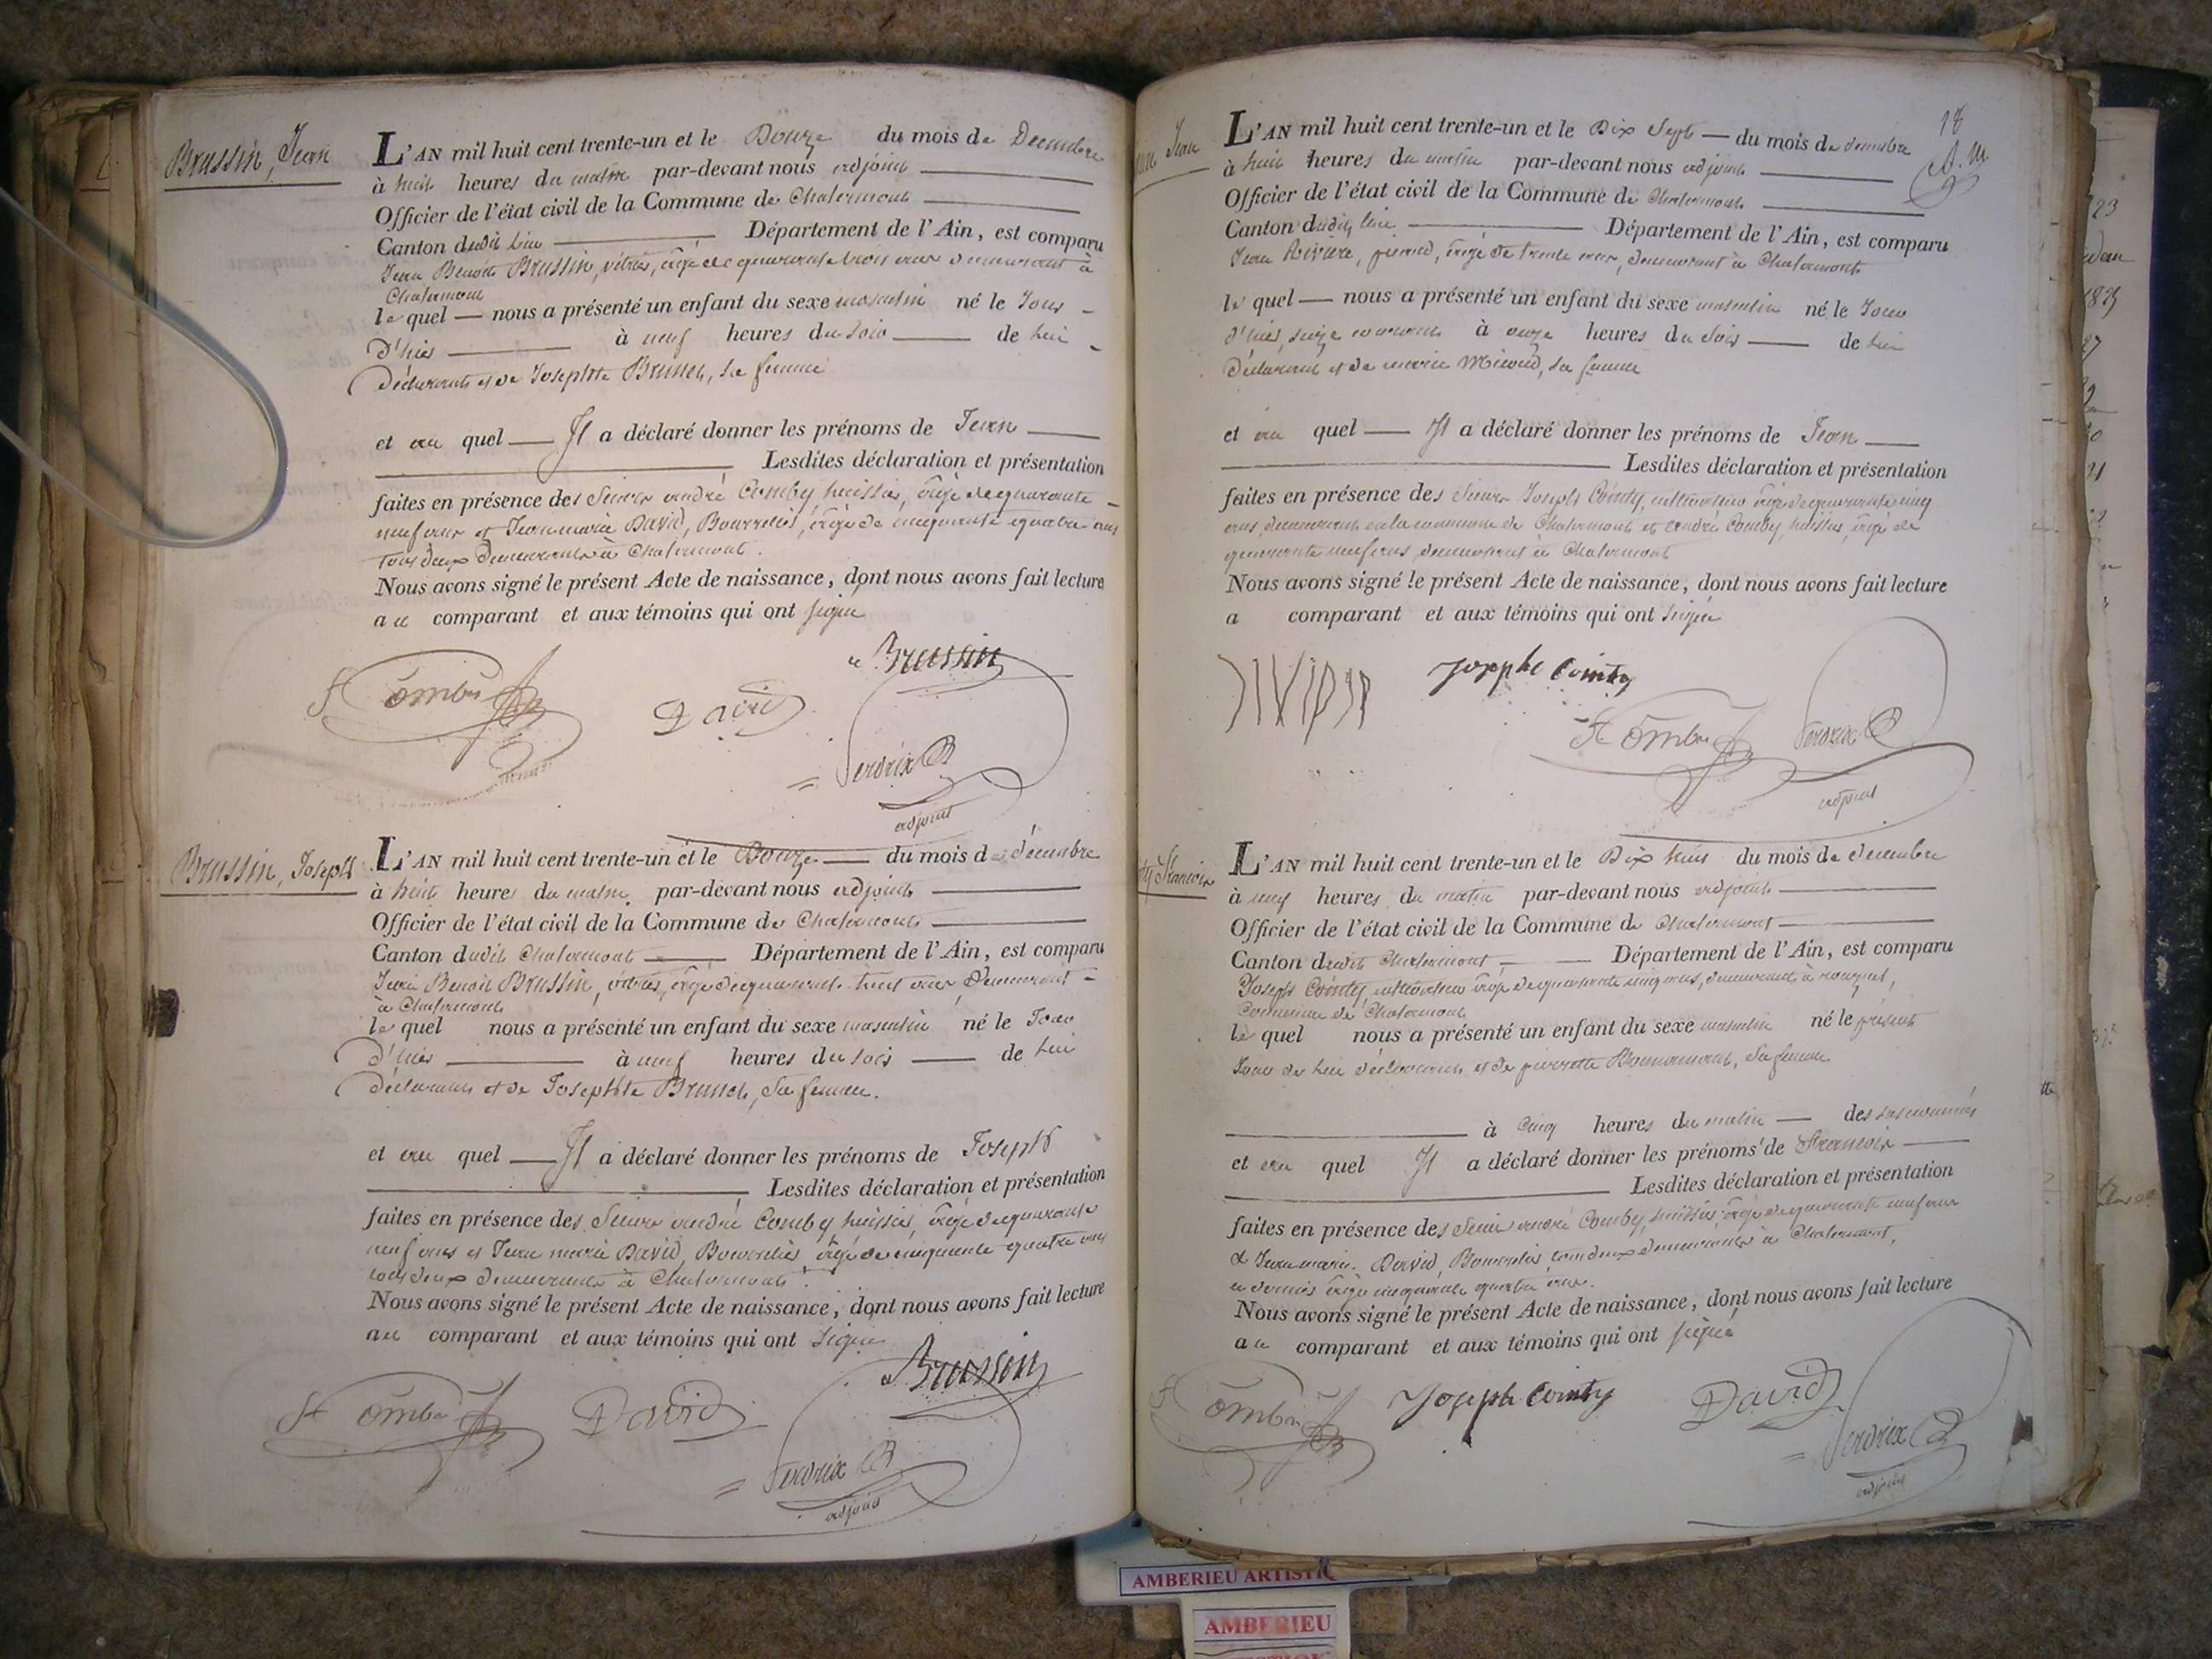 Brussin, Jean
L'AN mil huit cent trente-un et le Douze du mois de Decembre
à huit heures du matin par-devant nous adjoint
Officier de l'état civil de la Commune de Chalamont
Canton dudit lieu Département de l'Ain, est comparu
Jean Benoit Brussin, vitrier, âgé de quarante trois ans demeurant à
Chalamont
le quel nous a présenté un enfant du sexe masculin né le Jour
d'hier à neuf heures du soir de lui
Déclarant et de Josephte Brunet, sa femme
et au quel Il a déclaré donner les prénoms de Jean
Lesdites déclaration et présentation
faites en présence des Sieurs andré Comby huissier, âgé de quarante
neuf ans et Jean marie David, Bourrelier, âgé de cinquante quatre ans
tous deux demeurants à Chalamont.
Nous avons signé le présent Acte de naissance, dont nous avons fait lecture
au comparant et aux témoins qui ont signé
Brussin
Comby
David
Perdrix
adjoint
Brussin, Joseph
L'AN mil huit cent trente-un et le Douze du mois de décembre
à huit heures du matin par-devant nous adjoint
Officier de l'état civil de la Commune de Chalamont
Canton dudit Chalamont Département de l'Ain, est comparu
Jean Benoit Brussin, vitrier, âgé de quarante trois ans demeurant
à Chalamont
le quel nous a présenté un enfant du sexe masculin né le Jour
d'hier à neuf heures du soir de lui
déclarant et de Josephte Brunet, sa femme.
et au quel Il a déclaré donner les prénoms de Joseph
Lesdites déclaration et présentation
faites en présence des Sieurs andré Comby huissier, âgé de quarante
neuf ans et Jean marie David, Bourrelier, âgé de cinquante quatre ans
tous deux demeurants à Chalamont.
Nous avons signé le présent Acte de naissance, dont nous avons fait lecture
au comparant et aux témoins qui ont signé
Brussin
Comby
David
Perdrix
adjoint
18
Jean
L'AN mil huit cent trente-un et le Dix Sept du mois de décembre
à huit heures du matin par-devant nous adjoint
Officier de l'état civil de la Commune de Chalamont
Canton dudit lieu Département de l'Ain, est comparu
Jean Rivière, âgé de trente ans, demeurant à Chalamont
le quel nous a présenté un enfant du sexe masculin né le Jour
d'hier, seize courant à onze heures du soir de lui
Déclarant et de marie Micoud, sa femme
et au quel Il a déclaré donner les prénoms de Jean
Lesdites déclaration et présentation
faites en présence des Sieurs Joseph Cointy, cultivateur âgé de quarante cinq
ans, demeurant en la commune de Chalamont et andré Comby, huissier, âgé de
quarante neuf ans demeurant à Chalamont
Nous avons signé le présent Acte de naissance, dont nous avons fait lecture
a comparant et aux témoins qui ont signé
Josephe Cointy
Comby
Perdrix
adjoint
François
L'AN mil huit cent trente-un et le Dix huit du mois de décembre
à neuf heures du matin par-devant nous adjoint
Officier de l'état civil de la Commune de Chalamont
Canton dudit Chalamont Département de l'Ain, est comparu
Joseph Cointy, cultivateur âgé de quarante cinq ans, demeurant à
Commune de Chalamont
le quel nous a présenté un enfant du sexe masculin né le présent
Jour de lui déclarant et de pierrette Bonnamour, sa femme
à Cinq heures du matin des susnommés
et au quel Il a déclaré donner les prénoms de François
Lesdites déclaration et présentation
faites en présence des Sieurs andré Comby, huissier âgé de quarante neuf ans
& Jean marie David, Bourrelier, tous deux demeurants à Chalamont,
ce dernier âgé cinquante quatre ans.
Nous avons signé le présent Acte de naissance, dont nous avons fait lecture
au comparant et aux témoins qui ont signé
Comby
Joseph Cointy
David
Perdrix
adjoint
AMBERIEU
AMBERIEU